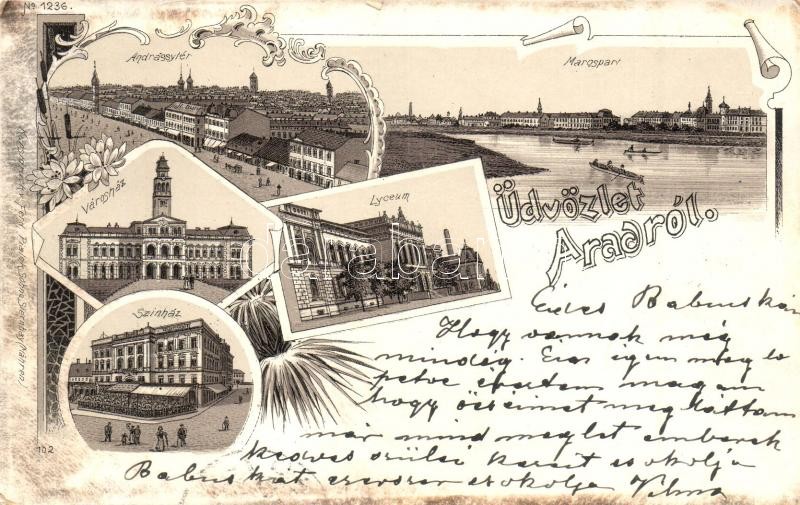 No 1236.
Andrássytér
Marospart
Városház
Lyceum
Üdvözlet
Aradról.
Színház
102
Édes Babuskám
Hogy vannak még
mindig. Én igen meg le
petve éreztem magam
hogy őszeimet megláttam
már mind meglet emberek
kedves szülei kezeit csokolja
Babuskát ezerszer csokolja Vilma
darabanth